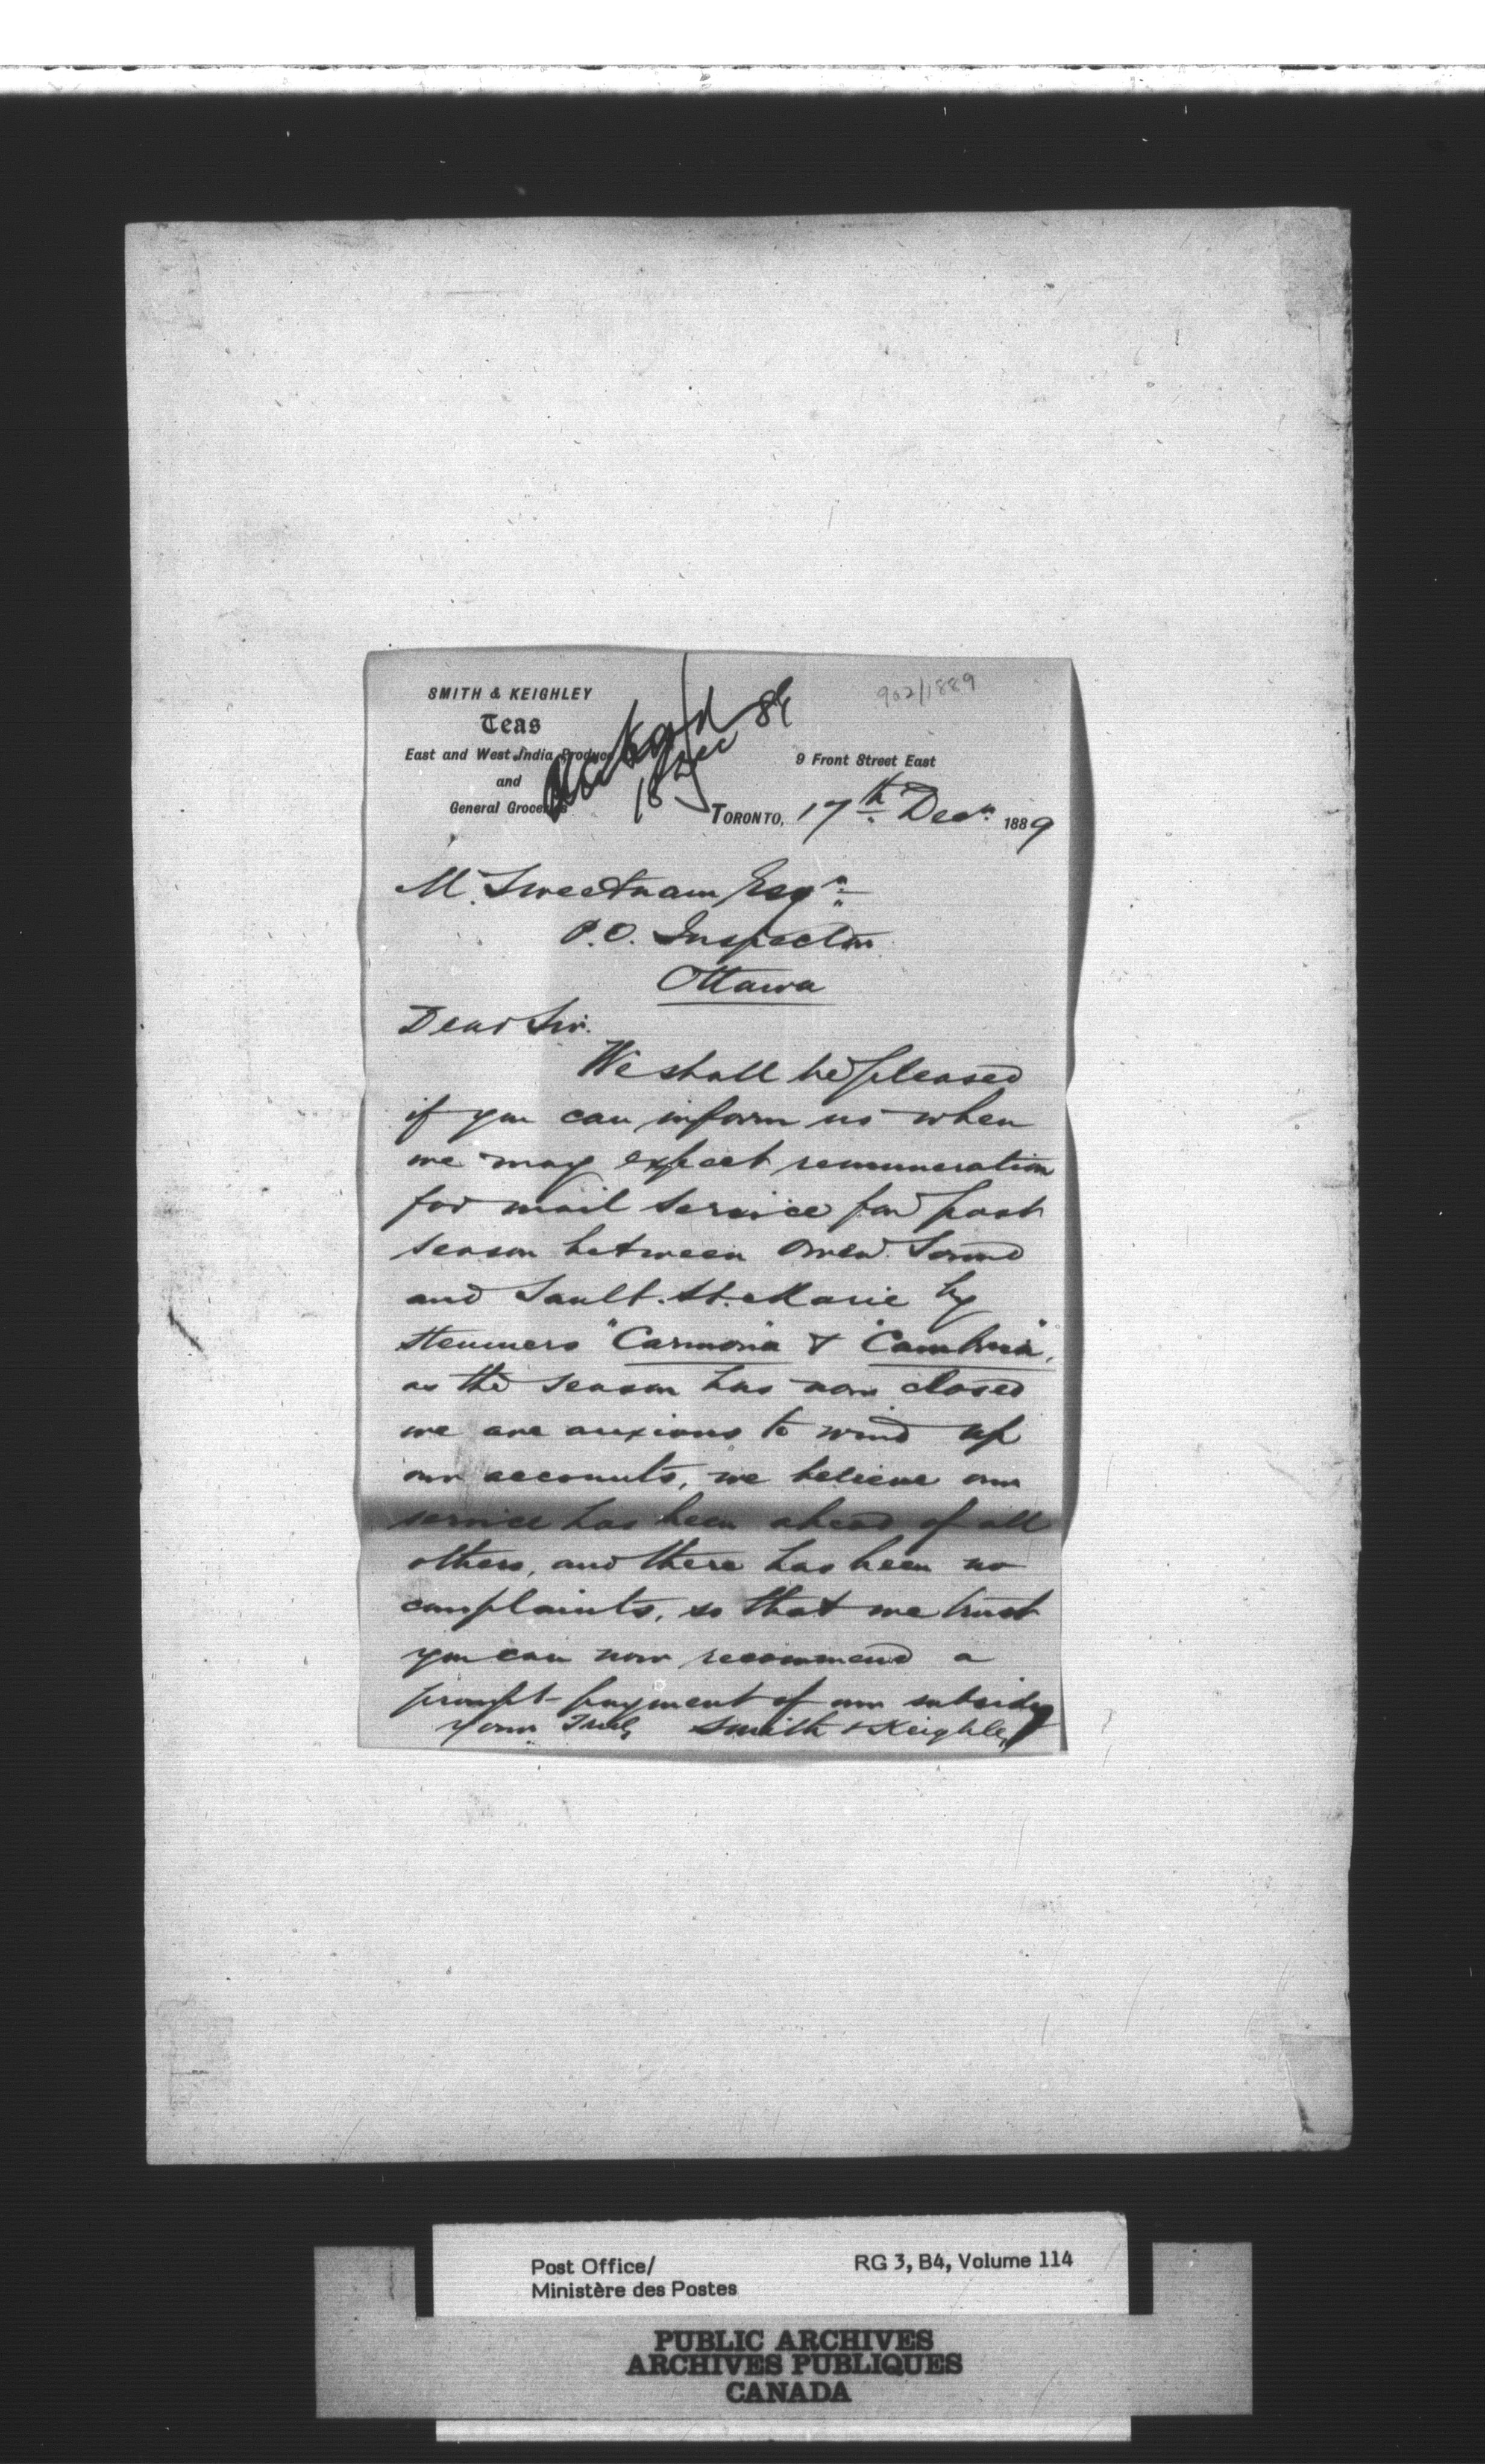 902/1889
SMITH & KEIGHLEY
Teas
East and West India Produce
and
General Groceries
Ackgd
18 Dec 89
9 Front Street East
TORONTO, 17th Decr. 1889
M. Sweetnam Esqr.
P.O. Inspector
Ottawa
Dear Sir.
We shall be pleased
if you can inform us when
we may expect remuneration
for mail service for past
season between Owen Sound
and Sault. St. Marie by
steamers "Carmona" & "Cambria",
as the season has now closed
we are anxious to wind up
our accounts, we believe our
service has been ahead of all
others, and there has been no
complaints, so that we trust
you can now recommend a
prompt payment of our subsidy
Yours Truly Smith & Keighley
Post Office/
Ministère des Postes
RG 3, B4, Volume 114
PUBLIC ARCHIVES
ARCHIVES PUBLIQUES
CANADA